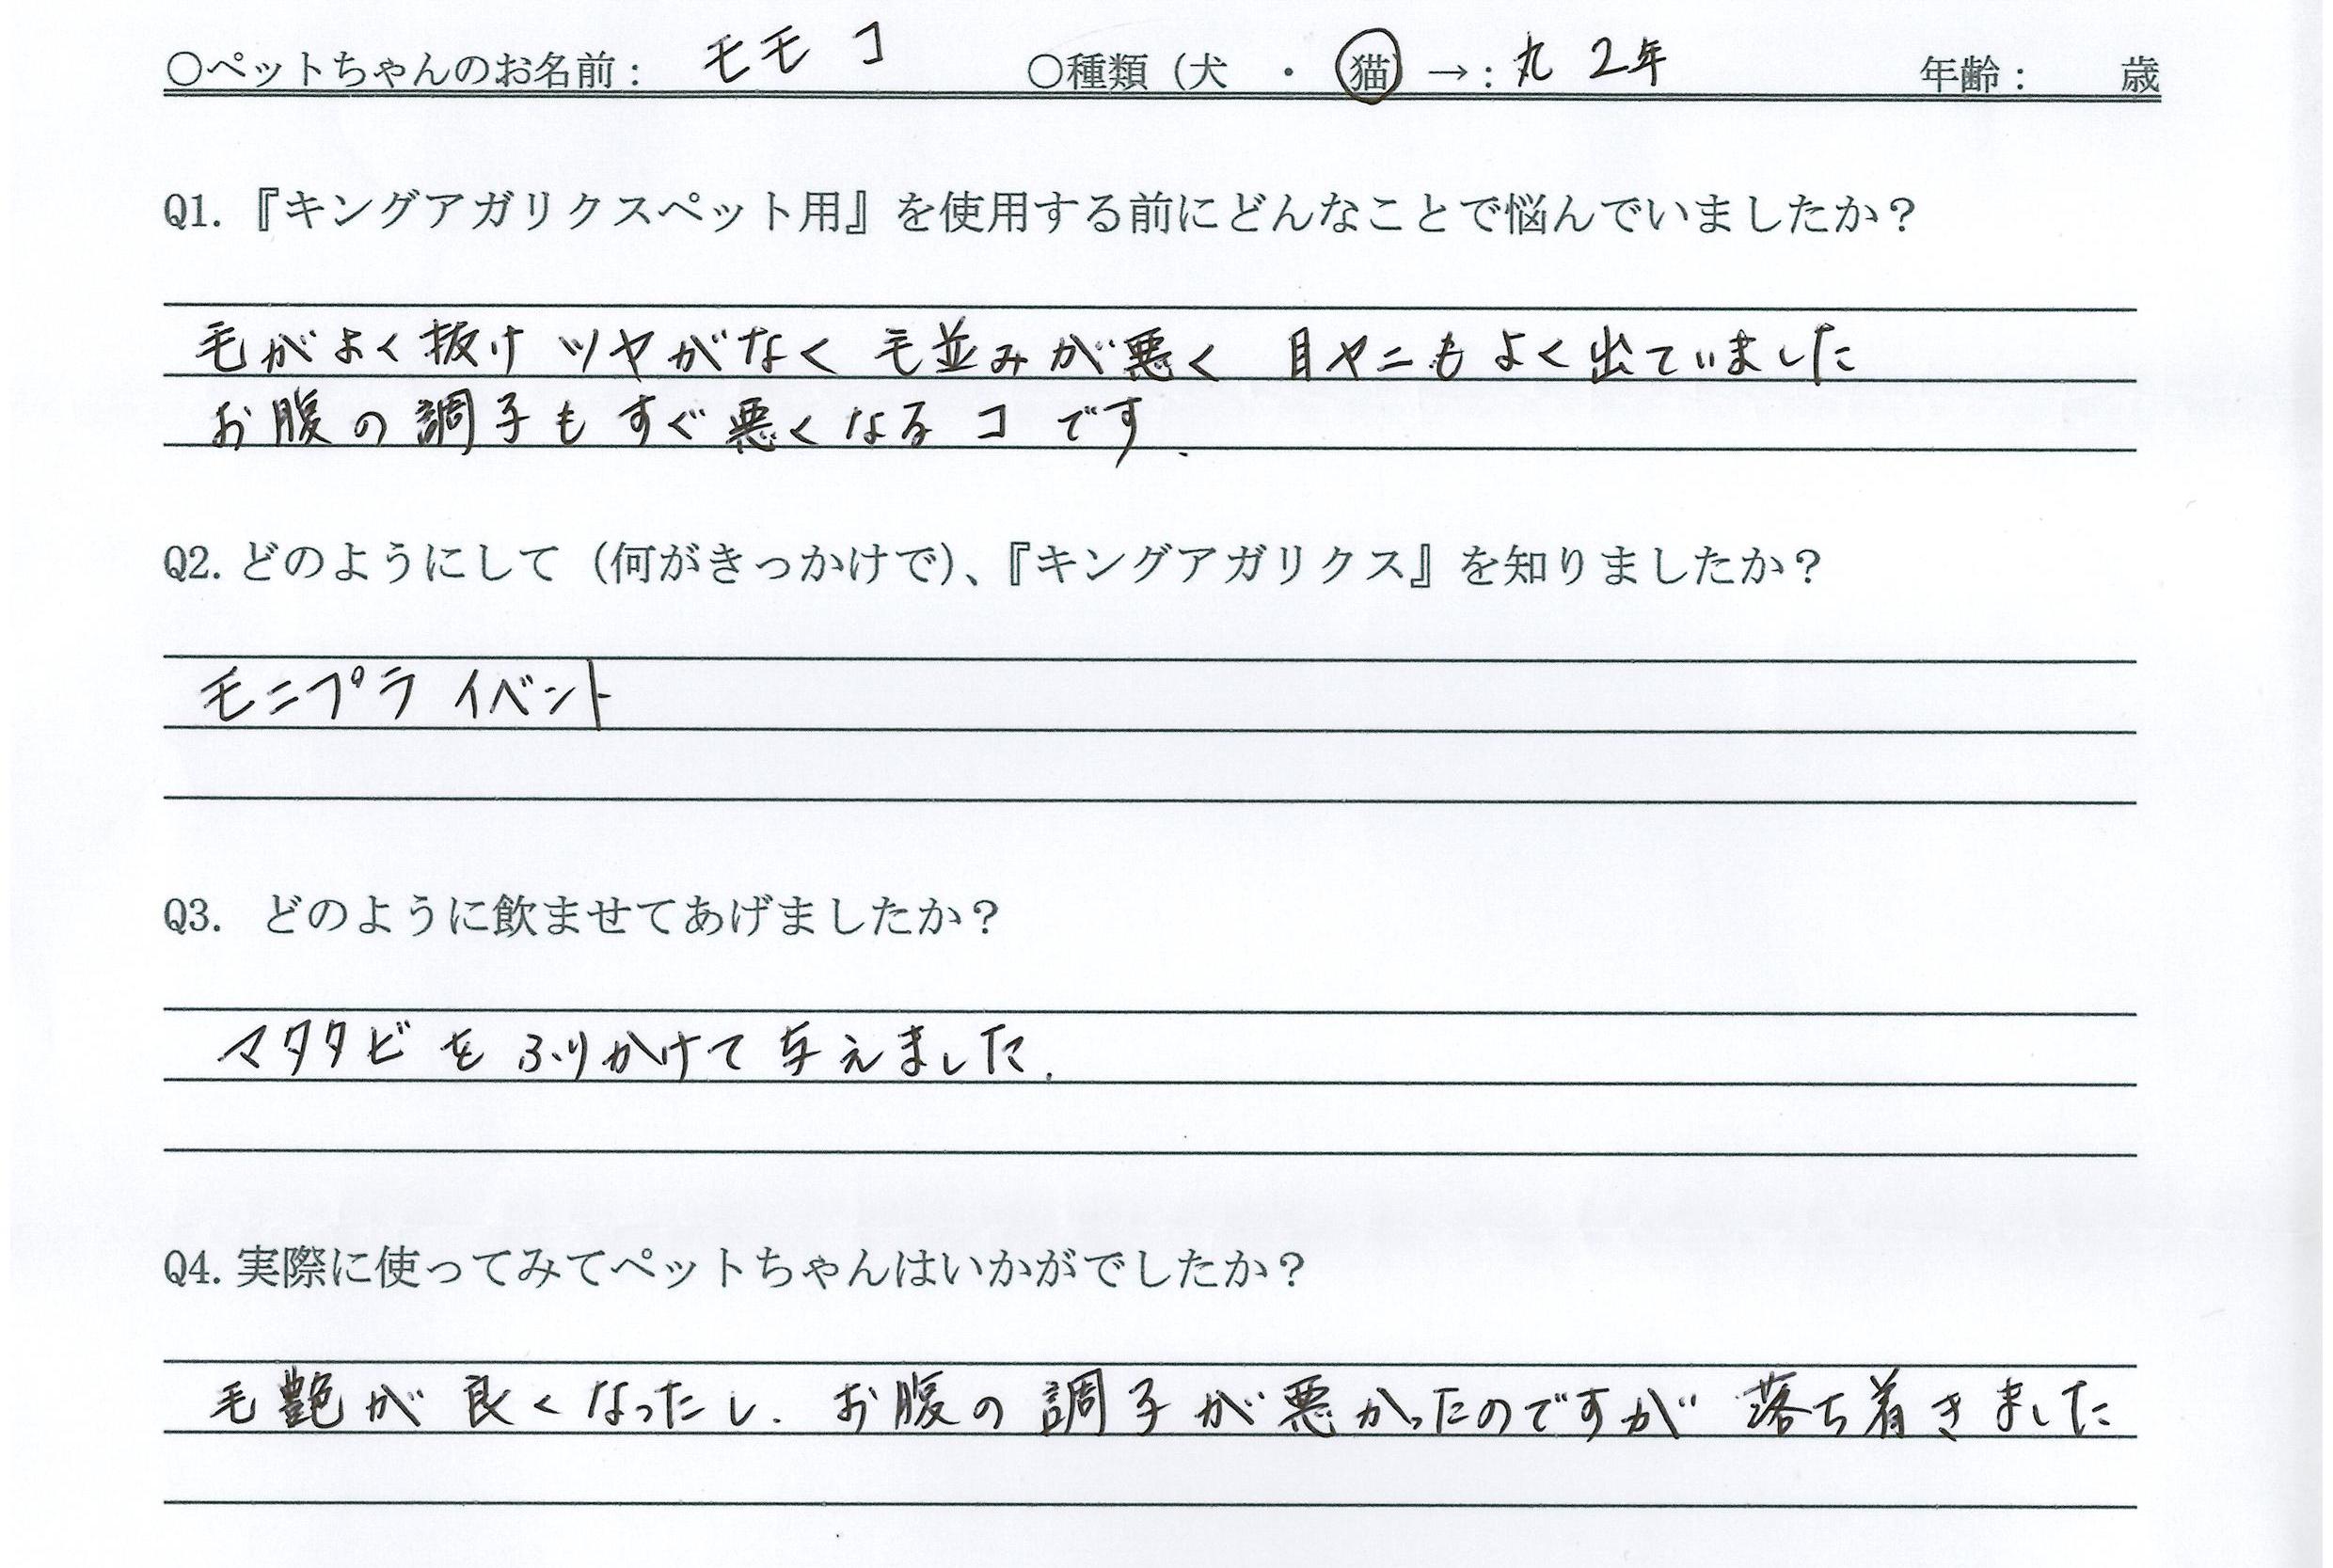 ○ペットちゃんのお名前： モモコ ○種類（犬 ・ 猫）→：丸2年 年齢： 歳
Q1.『キングアガリクスペット用』を使用する前にどんなことで悩んでいましたか？
毛がよく抜け ツヤがなく 毛並みが悪く 目ヤニもよく出ていました
お腹の調子もすぐ悪くなるコです.
Q2.どのようにして（何がきっかけで）、『キングアガリクス』を知りましたか？
モニプラ イベント
Q3. どのように飲ませてあげましたか？
マタタビをふりかけて与えました.
Q4.実際に使ってみてペットちゃんはいかがでしたか？
毛艶が良くなったし. お腹の調子が悪かったのですが 落ち着きました